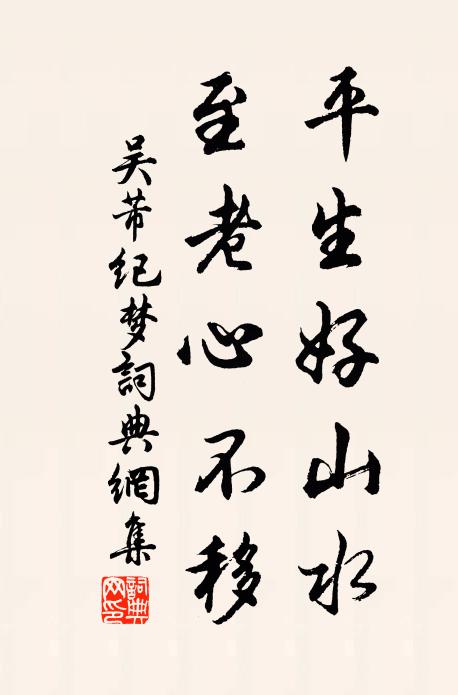 平生好山水
至老心不移
吴芾纪梦詞典網集
詞典網印